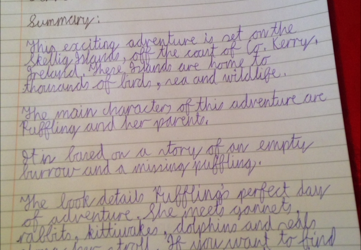 Summary:
This exciting adventure is set on the
Skellig Islands, off the coast of Co. Kerry,
Ireland. These Islands are home to
thousands of birds, sea and wildlife.
The main character of this adventure are
Puffling and her parents.
It is based on a story of an empty
burrow and a missing puffling.
The book details Puffling's perfect day
of adventure. She meets gannets,
rabbits, kittiwakes, dolphins and seals
If you want to find